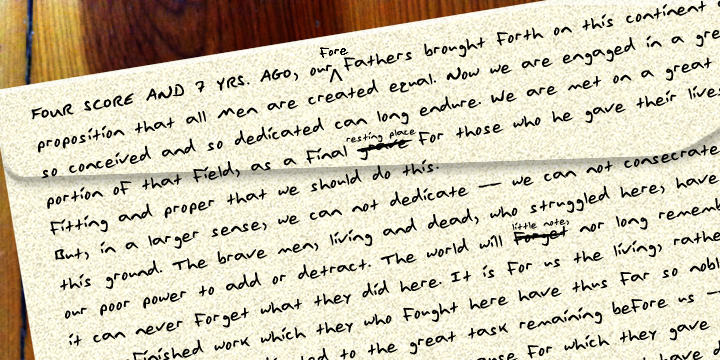 FOUR SCORE AND 7 YRS. AGO, our Fore Fathers brought Forth on this continent
proposition that all men are created equal. Now we are engaged in a gre
so conceived and so dedicated can long endure. We are met on a great
portion of that Field, as a Final grave resting place For those who he gave their lives
Fitting and proper that we should do this.
But, in a larger sense, we can not dedicate — we can not consecrate
this ground. The brave men, living and dead, who struggled here, have
our poor power to add or detract. The world will Forget little note, nor long rememb
it can never Forget what they did here. It is For us the living, rathe
Finished work which they who Fought here have thus Far so nobl
to the great task remaining beFore us —
For which they gave
have d